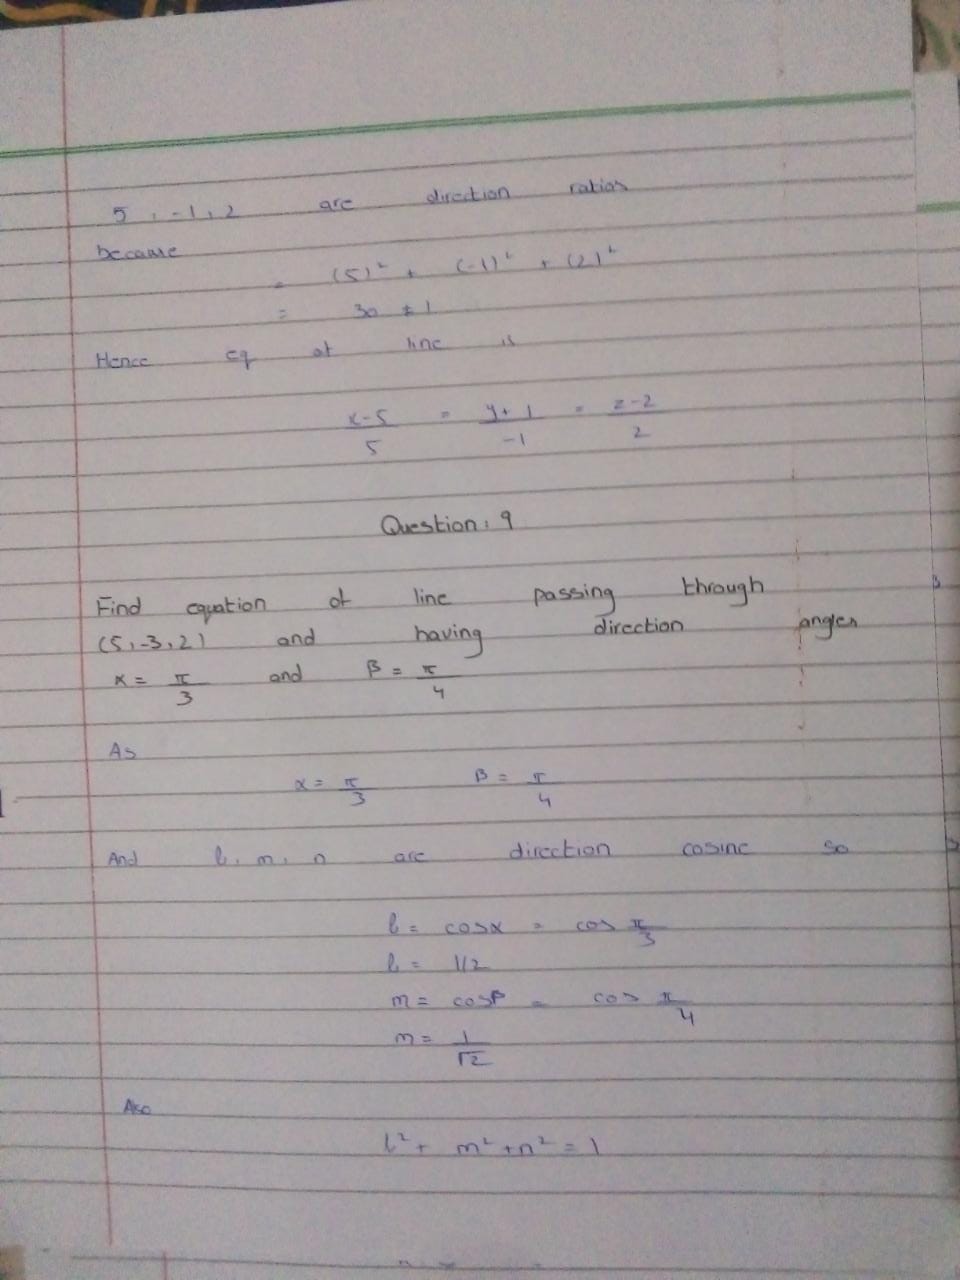 5, -1, 2 are direction ratios
because
= (5)² + (-1)² + (2)²
= 30 ≠ 1
Hence eq of line is
x-5/5 = y+1/-1 = z-2/2
Question: 9
Find equation of line passing through
(5,-3,2) and having direction angles
α = π/3 and β = π/4
As
α = π/3 β = π/4
And l, m, n are direction cosine so
l = cosα = cos π/3
l = 1/2
m = cosβ = cos π/4
m = 1/√2
Also
l² + m² + n² = 1